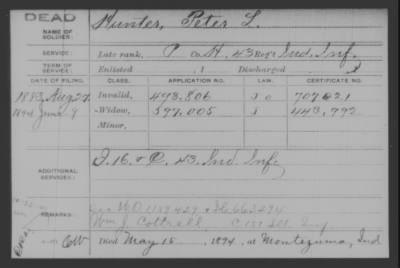 DEAD
NAME OF SOLDIER: Hunter, Peter L.
SERVICE: Late rank, P Co. H, 43 Reg't Ind. Inf.
TERM OF SERVICE: Enlisted , 1 Discharged
DATE OF FILING. CLASS. APPLICATION NO. LAW. CERTIFICATE NO.
1883, Aug 27 Invalid, 493.806 707021
1894 June 9 Widow, 597,005 443,792
Minor,
ADDITIONAL SERVICES: 43. Ind. Inf.
REMARKS: 1189429
Wm J. Cottrell C
Died May 15, 1894, at Montezuma, Ind